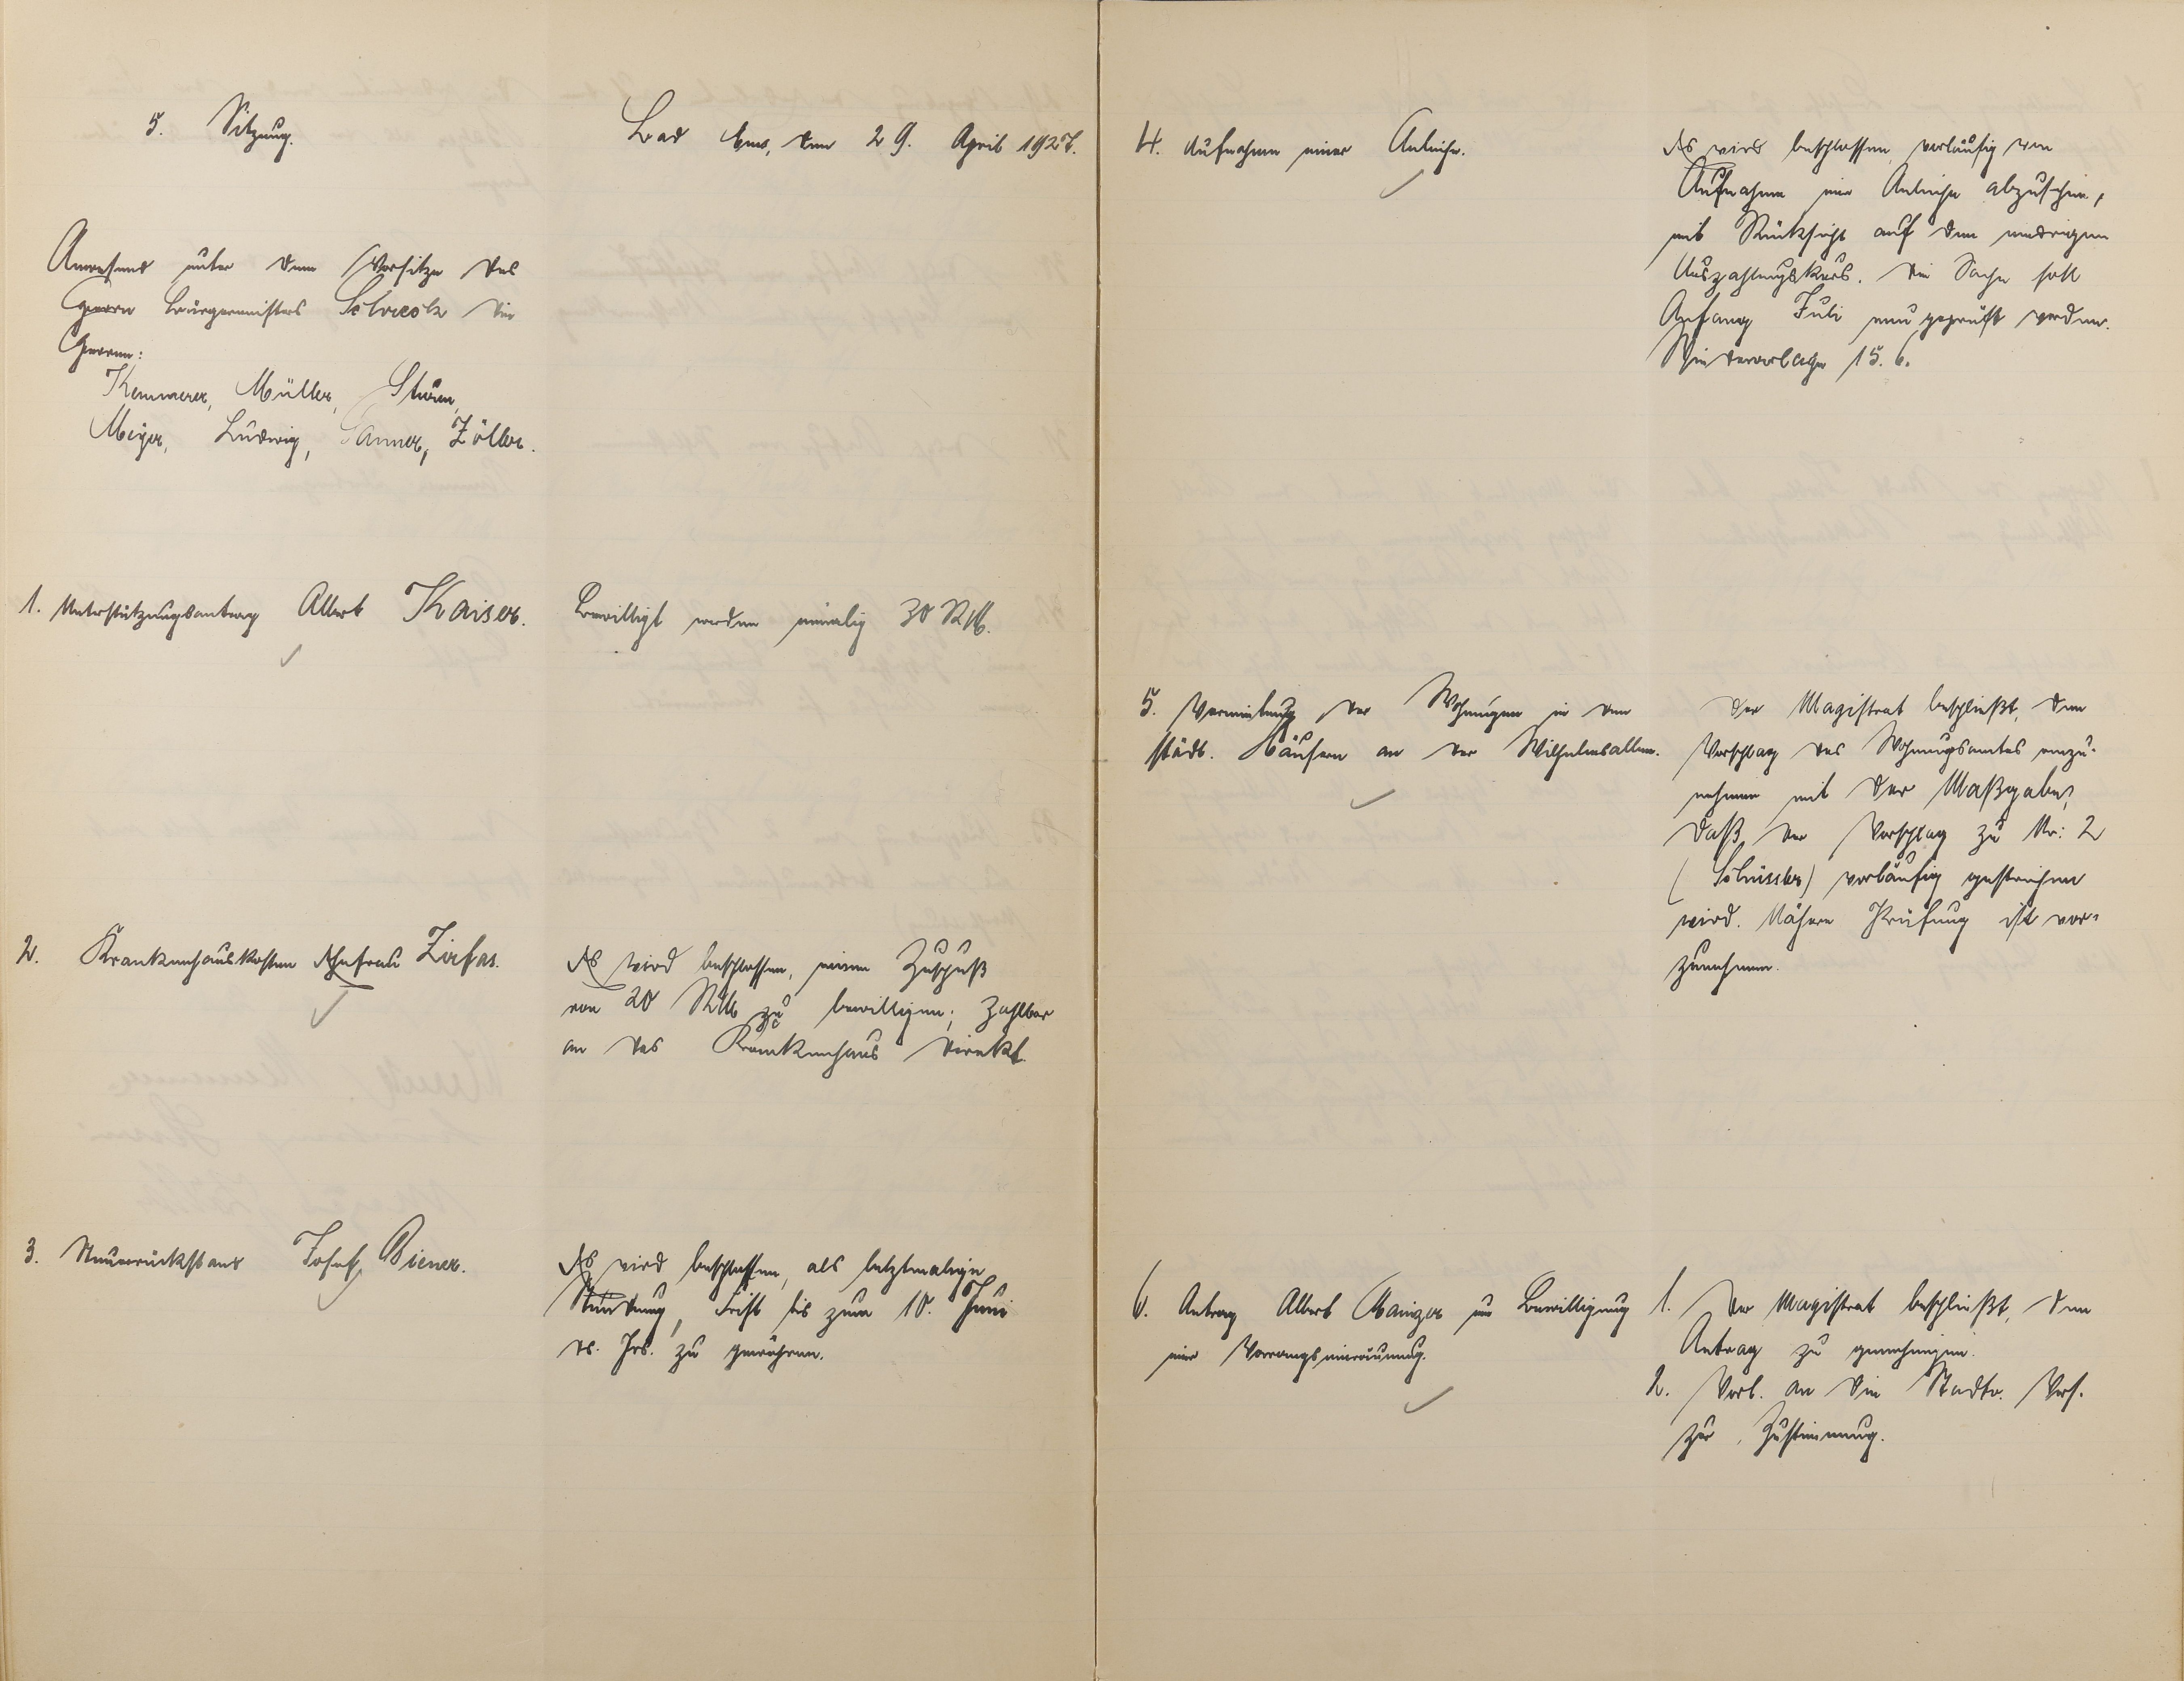 5. Sitzung.
Bad Ems, den 29. April 1927.
Anwesend unter dem Vorsitze des
Herrn Bürgermeisters Schreck die
Herren:
Kemmerer, Müller, Sturm,
Meyer, Ludwig, Sanner, Zöller.
1. Unterstützungsantrag Albert Kaiser.
Bewilligt werden einmalig 30 RM.
2. Krankenhauskosten Ehefrau Zirfas.
Es wird beschlossen, einen Zuschuß
von 20 RM zu bewilligen; zahlbar
an das Krankenhaus direkt.
3. Steuerrückstand Josef Biener.
Es wird beschlossen, als letztmalige
Stundung, Frist bis zum 10. Juni
ds. Jrs. zu gewähren.
4. Aufnahme einer Anleihe.
Es wird beschlossen, vorläufig von
Aufnahme einer Anleihe abzusehen,
mit Rücksicht auf den niedrigen
Auszahlungskurs. Die Sache soll
Anfang Juli neu geprüft werden.
Wiedervorlage 15. 6.
5. Vermietung der Wohnungen in den
städt. Häusern an der Wilhelmsallee.
Der Magistrat beschließt, den
Vorschlag des Wohnungsamtes anzu-
nehmen mit der Maßgabe,
daß der Vorschlag zu Nr: 2
(Schüssler) vorläufig gestrichen
wird. Nähere Prüfung ist vor-
zunehmen.
6. Antrag Albert Mainzer um Bewilligung
einer Vorrangseinräumung.
1. Der Magistrat beschließt, den
Antrag zu genehmigen.
2. Vorl. an die Stadtv. Vers.
zur Zustimmung.